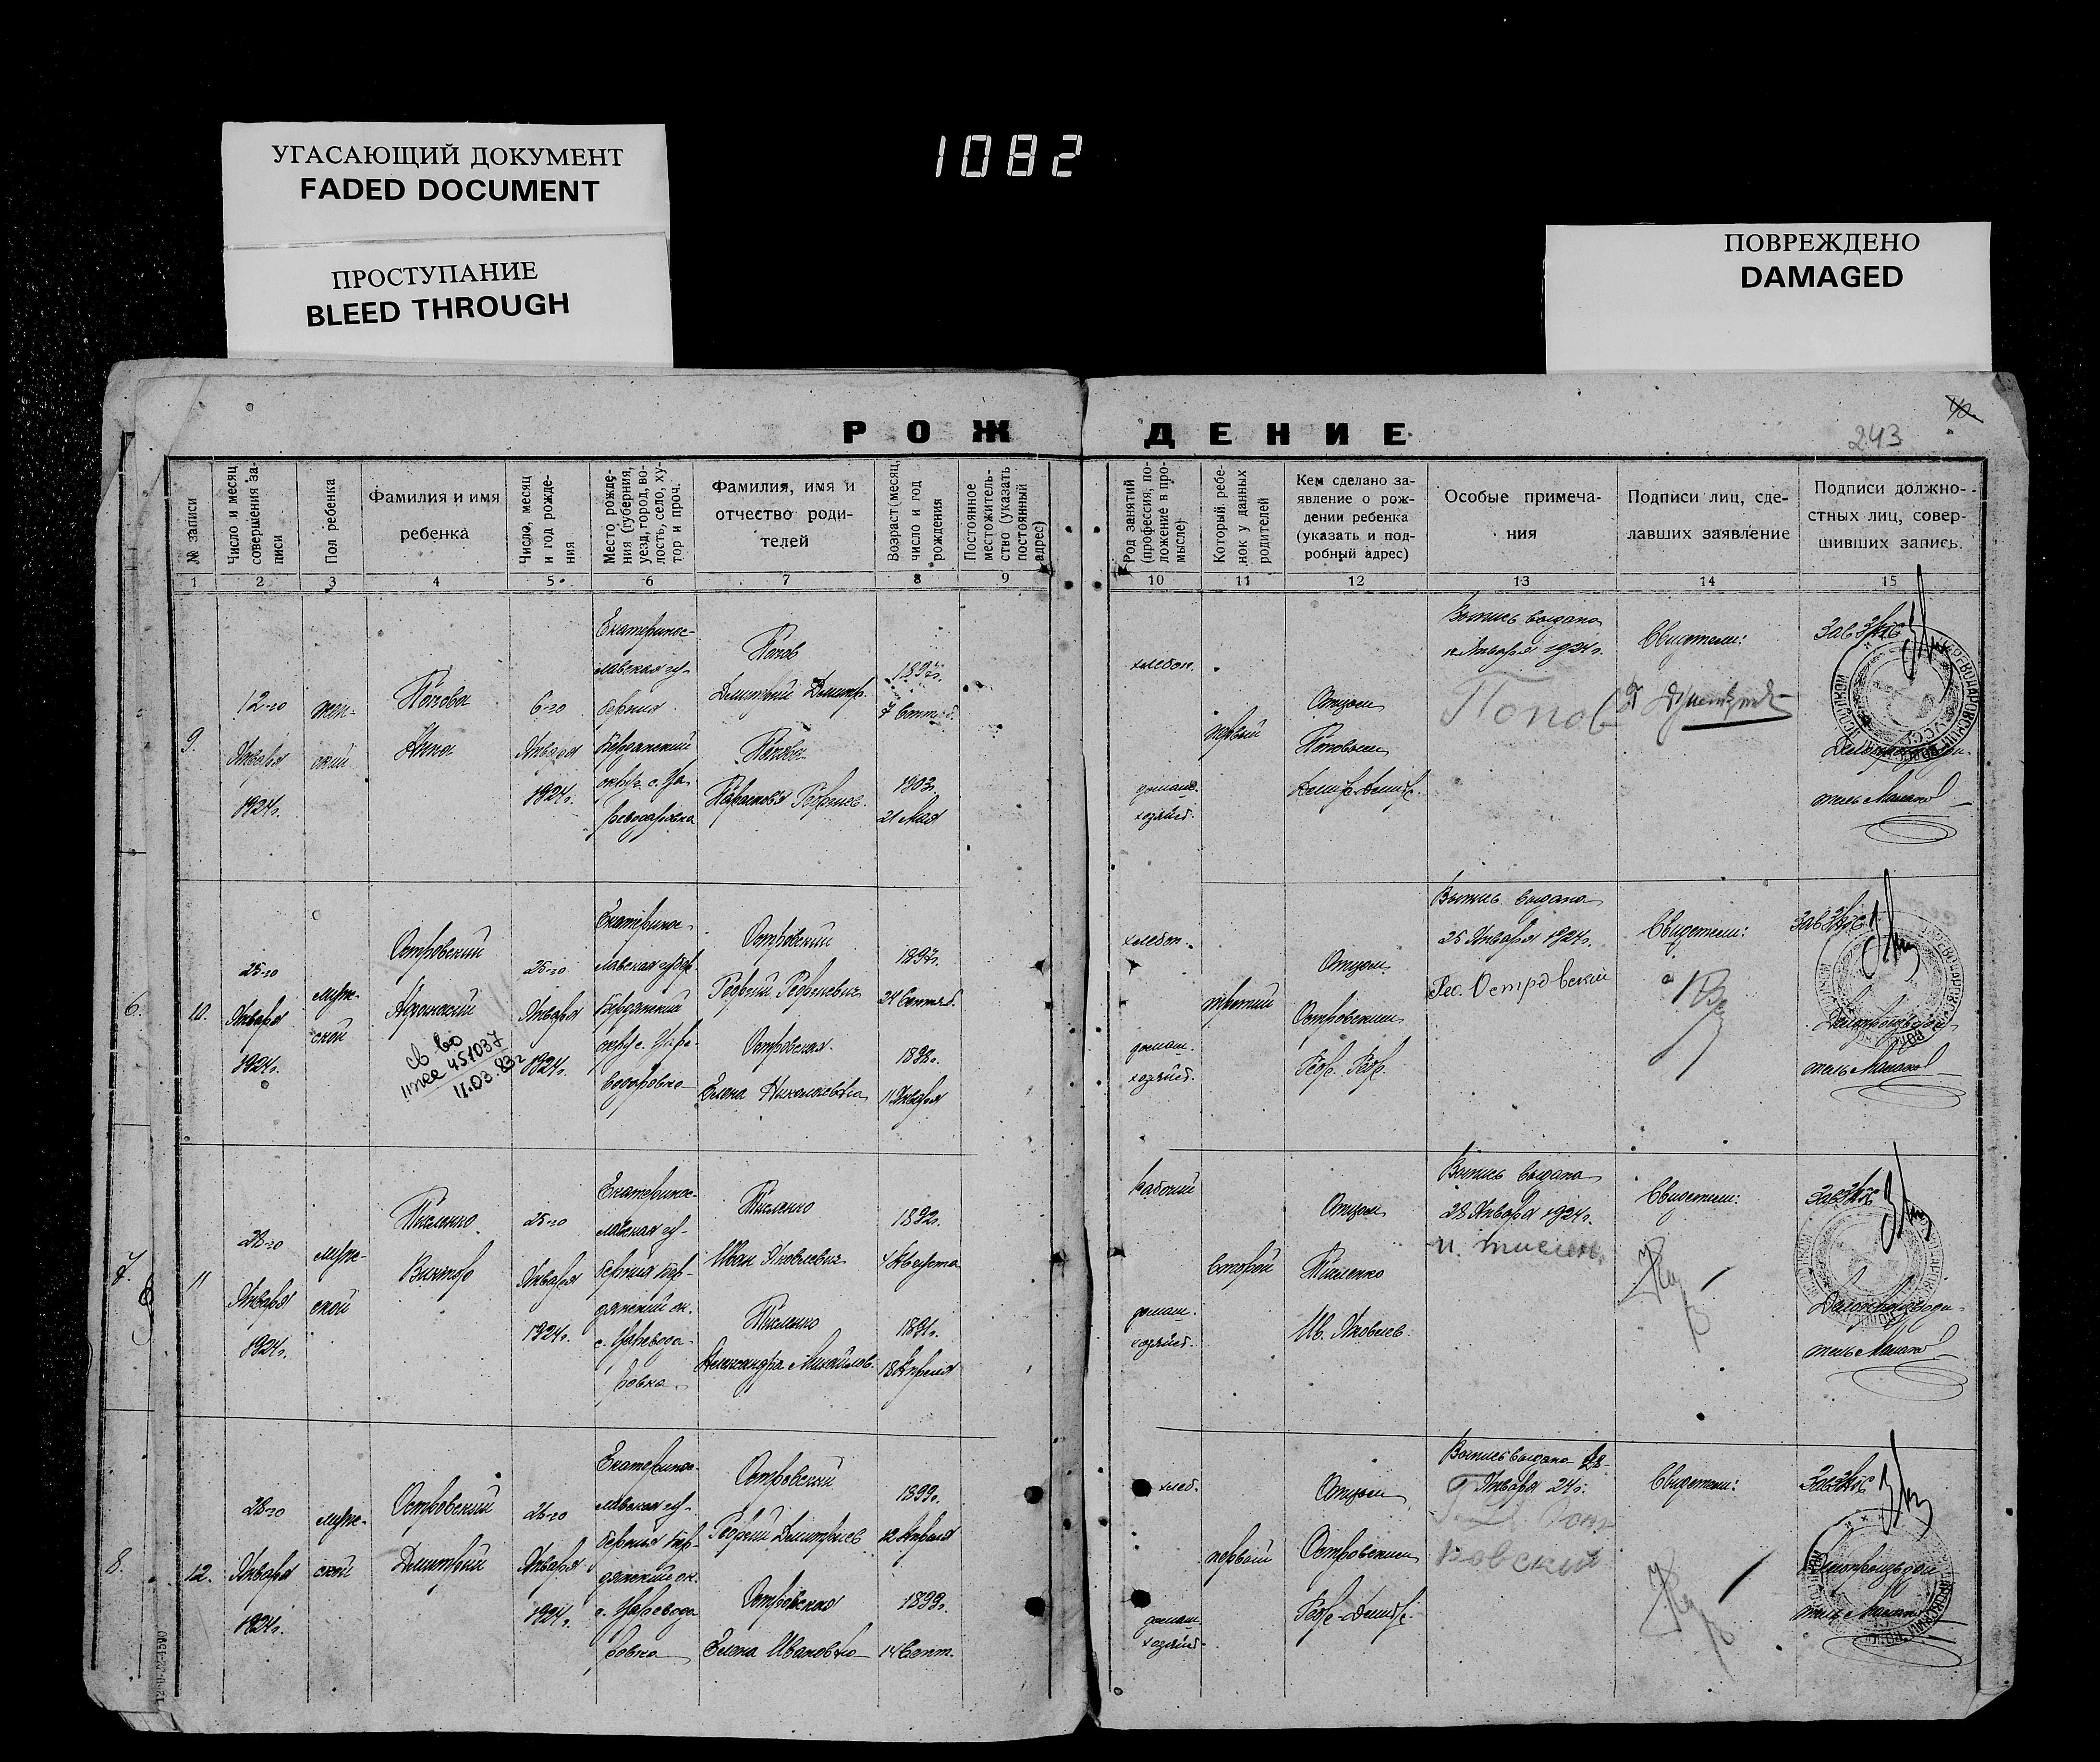 1082
УГАСАЮЩИЙ ДОКУМЕНТ
FADED DOCUMENT
ПРОСТУПАНИЕ
BLEED THROUGH
ПОВРЕЖДЕНО
DAMAGED
РОЖДЕНИЕ
40
243
№ записи
Число и месяц
совершения за-
писи
Пол ребенка
Фамилия и имя
ребенка
Число, месяц
и год рожде-
ния
Место рожде-
ния (губерния,
уезд, город, во-
лость, село, ху-
тор и проч.
Фамилия, имя и
отчество роди-
телей
Возраст (месяц,
число и год
рождения
Постоянное
местожитель-
ство (указать
постоянный
адрес)
Род занятий
(профессия, по-
ложение в про-
мысле)
Который ребе-
нок у данных
родителей
Кем сделано за-
явление о рож-
дении ребенка
(указать и под-
робный адрес)
Особые примеча-
ния
Подписи лиц, сде-
лавших заявление
Подписи должно-
стных лиц, совер-
шивших запись.
1 2 3 4 5 6 7 8 9 10 11 12 13 14 15
9.
12-го
Января
1924г.
жен-
ский
Попова
Нина
6-го
Января
1924г.
Екатеринос-
лавская гу-
берния
Бердянский
округ с. Ца-
реводаровка
Попов
Дмитрий Дмитр.
Попова
Параскова Георгиев.
1897г.
7 Сентяб.
1903г.
21 Мая
хлебоп.
домашн.
хозяйст.
первый
Отцом
Поповым
Дмитр. Дмитр.
Выпись выдана
12 Января 1924г.
Попов
Свидетели:
Зав Загс
Делопроизводи-
тель
6.
10.
25-го
Января
1924г.
муж-
ской
Островский
св во
451037
11.03.83г
25-го
Января
1924г.
Екатеринос-
лавская губер.
Бердянский
окр. с. Царе-
водаровка
Островский
Георгий Георгиевич
Островская
Елена Николаевна
1897г.
24 Сентяб.
1898г.
11 Января
хлебоп.
домаш.
хозяйст.
третий
Отцом
Островским
Геор. Геор.
Выпись выдана
25 Января 1924г.
Гео. Островский
Свидетели:
Зав Загс
Делопроизводи
тель
7.
11
28-го
Января
1924г.
муж-
ской
Тисленко
Виктор
25-го
Января
1924г.
Екатеринос-
лавская гу-
берния Бер-
дянский ок.
с. Царевода-
ровка
Тисленко
Иван Яковлевич
Тисленко
Александра Михайлов.
1892г.
4 Августа
1891г.
18 Апреля
рабочий
домаш.
хозяйст.
второй
Отцом
Тисленко
Ив. Яковлев.
Выпись выдана
28 Января 1924г.
Свидетели:
Зав Загс
Делопроизводи-
тель
8.
12.
28-го
Января
1924г.
муж-
ской
Островский
Дмитрий
26-го
Января
1924г.
Екатеринос-
лавская гу-
берния Бер-
дянский ок.
с. Царевода
ровка
Островский
Георгий Дмитриев
Островская
Елена Ивановна
1899г.
12 Апреля
1899г.
14 Сент.
хлеб.
домаш.
хозяйст.
первый
Отцом
Островским
Геор. Дмитр.
Выпись выдана 28-
Января 24г.
ровский
Свидетели:
Зав Загс
Делопроизводи
тель